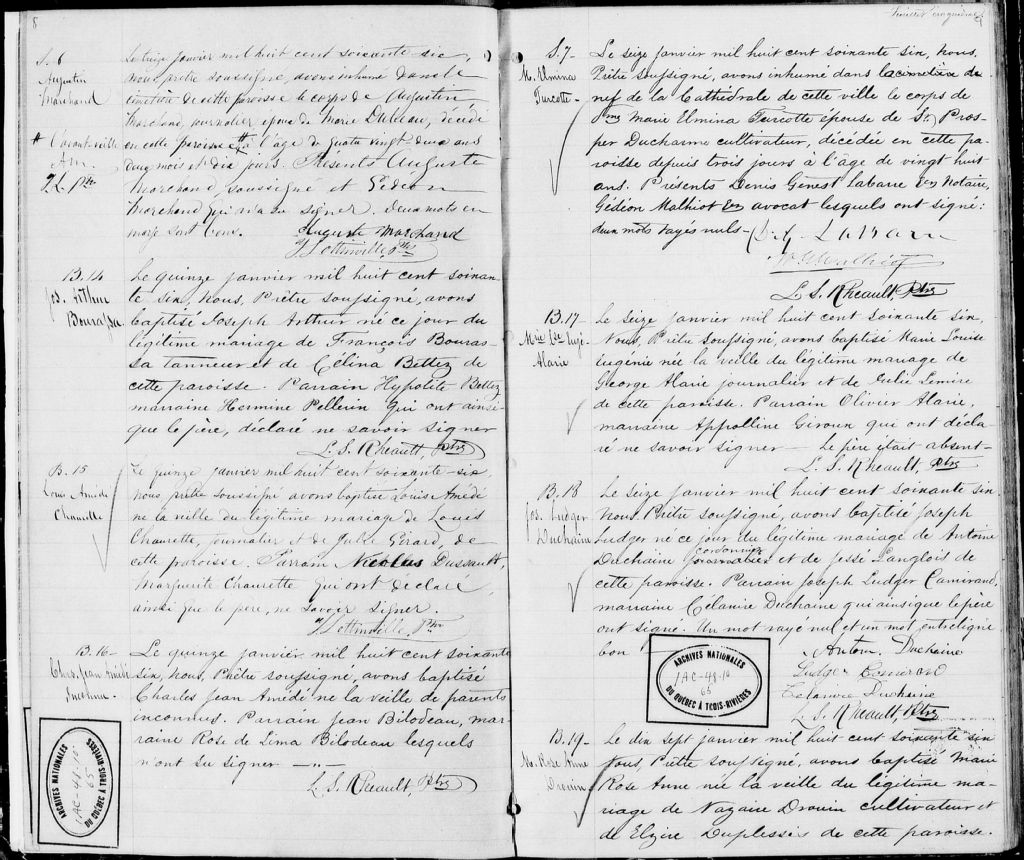 8
S. 6
Augustin
Marchand
# l'avant-veille
J. L. Ptre
Le treize janvier mil huit cent soixante six,
nous prêtre soussigné, avons inhumé dans le
cimetière de cette paroisse le corps de Augustin
Marchand, journalier époux de Marie Dubeau, décédé
en cette paroisse # à l'âge de quatre vingt deux ans
cinq mois et dix jours. Présents Auguste
Marchand soussigné et Gédéon
Marchand qui n'a su signer. Deux mots en
marge sont bons.
Auguste Marchand
J. Lottinville Ptre
B. 14
Jos. Arthur
Bourassa
Le quinze janvier mil huit cent soixan-
te six, Nous, Prêtre soussigné, avons
baptisé Joseph Arthur né ce jour du
légitime mariage de François Bouras-
sa tanneur et de Célina Bettez de
cette paroisse. Parrain Hypolite Bettez
marraine Hermine Pellerin qui ont ainsi
que le père, déclaré ne savoir signer
L. S. Rheault, Ptre
B. 15
Louis Amédé
Chaurette
Le quinze janvier mil huit cent soixante-six,
nous prêtre soussigné avons baptisé Louis Amédé
né la veille du légitime mariage de Louis
Chaurette, journalier et de Julie Gérard, de
cette paroisse. Parrain Nicolas Dussault,
Marguerite Chaurette qui ont déclaré
ainsi que le père, ne savoir signer.
J. Lottinville, Ptre
B. 16-
Chs. Jean Amédé
Inconnu.
Le quinze janvier mil huit cent soixante
six, Nous, Prêtre soussigné, avons baptisé
Charles Jean Amédé né la veille de parents
inconnus. Parrain Jean Bilodeau, mar-
raine Rose de Lima Bilodeau lesquels
n'ont su signer —
L. S. Rheault, Ptre
ARCHIVES NATIONALES
IAC-48-10
65
DU QUÉBEC À TROIS-RIVIÈRES
feuillet cinquième
9
S. 7-
M. Elmina
Turcotte-
Le seize janvier mil huit cent soixante six, Nous,
Prêtre soussigné, avons inhumé dans la cimetière de
nef de la Cathédrale de cette ville le corps de
Dme Marie Elmina Turcotte épouse de St. Pros-
per Ducharme cultivateur, décédée en cette pa-
roisse depuis trois jours à l'âge de vingt huit
ans. Présents Denis Genest Labarre Ecr Notaire,
Gédéon Malhiot Ecr avocat lesquels ont signé:
deux mots rayés nuls- D. G. Labarre
H. G. Malhiot
L. S. Rheault, Ptre
B. 17
Mrie Lse Eugé-
Alarie
Le seize janvier mil huit cent soixante six,
Nous, Prêtre soussigné, avons baptisé Marie Louise
Eugénie née la veille du légitime mariage de
George Alarie journalier et de Julie Lemire
de cette paroisse. Parrain Olivier Alarie,
marraine Appolline Giroux qui ont décla
ré ne savoir signer — Le père était absent-
L. S. Rheault, Ptre
B. 18
Jos. Ludger
Duchaine
Le seize janvier mil huit cent soixante six
Nous, Prêtre soussigné, avons baptisé Joseph
Ludger né ce jour du légitime mariage de Antoine
cordonnier
Duchaine journalier et de Jessé Langlois de
cette paroisse. Parrain Joseph Ludger Camirand,
marraine Célanire Duchaine qui ainsi que le père
ont signé. Un mot rayé nul et un mot entreligne
bon
Antoin Duchaine
Ludger Camirand
Célanire Duchaine
L. S. Rheault, Ptre
ARCHIVES NATIONALES
IAC-48-10
65
DU QUÉBEC À TROIS-RIVIÈRES
B. 19-
M. Rose Anne
Drouin
Le dix sept janvier mil huit cent soixante six
Nous, Prêtre soussigné, avons baptisé Marie
Rose Anne née la veille du légitime ma-
riage de Nazaire Drouin cultivateur et
de Elzire Duplessis de cette paroisse.